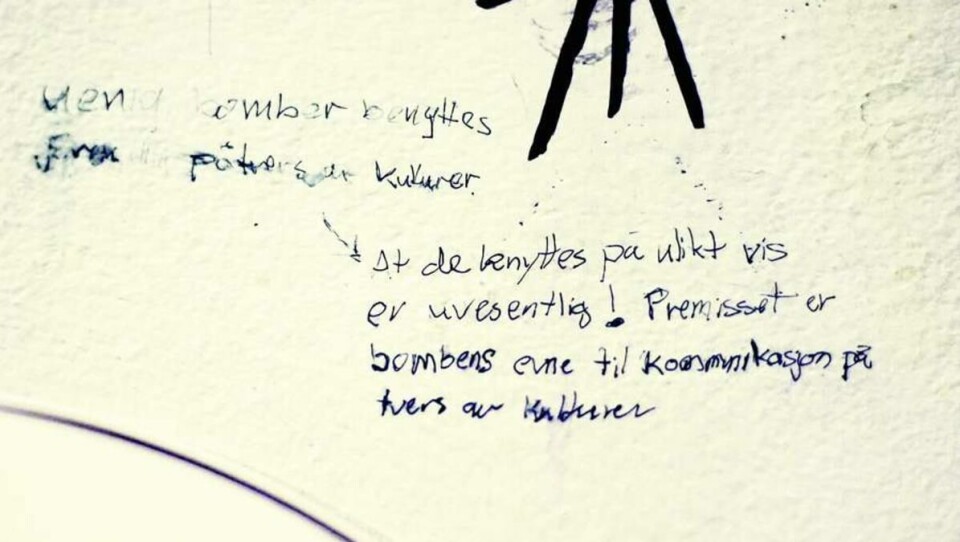 Uenig bomber benyttes
på tvers av kulturer
At de benyttes på ulikt vis
er uvesentlig! Premisset er
bombens evne til kommunikasjon på
tvers av kulturer